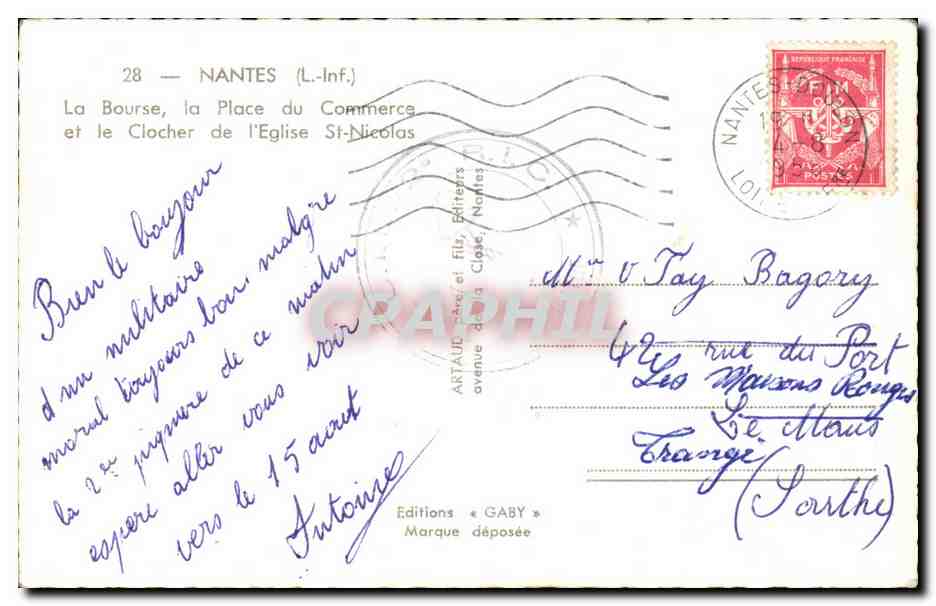 28 — NANTES (L.-Inf.)
La Bourse, la Place du Commerce
et le Clocher de l'Eglise St-Nicolas
Bien le boujour
d'un militaire
moral toujours bon, malgré
la 2em piqure de ce matin
espere aller vous voir
vers le 15 aout
Antoine
ARTAUD Père et Fils, Editeurs
avenue de la Close, Nantes
Editions « GABY »
Marque déposée
REPUBLIQUE FRANÇAISE
F M
POSTES
NANTES
4-8
R.I.C
CRAPHIL
Bagory
42 rue du Port
Les Maisons Rouges
Le Mans
Trangé
(Sarthe)